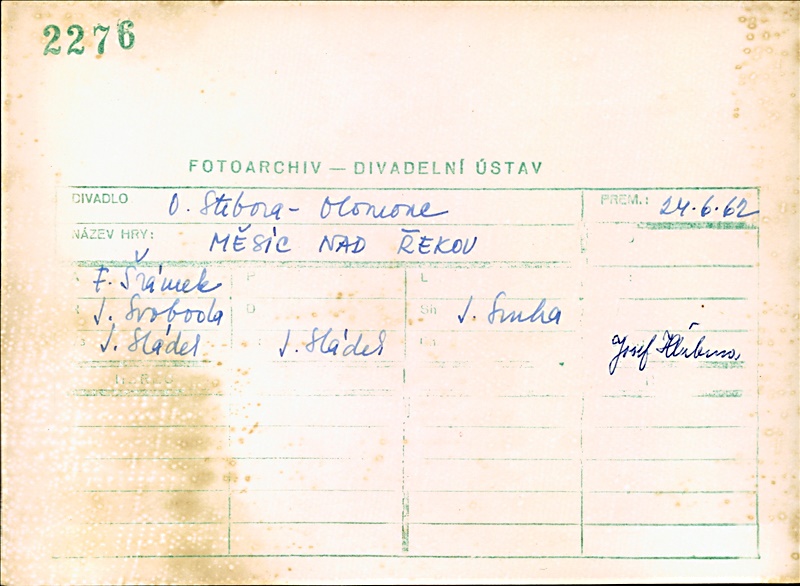 2276
FOTOARCHIV — DIVADELNÍ ÚSTAV
DIVADLO O. Stibora - Olomouc PREM.: 24.6.62
NÁZEV HRY: MĚSÍC NAD ŘEKOU
F. Šrámek P L
J. Svoboda D Sh J. Smha
J. Sládeš J. Sládeš Josef